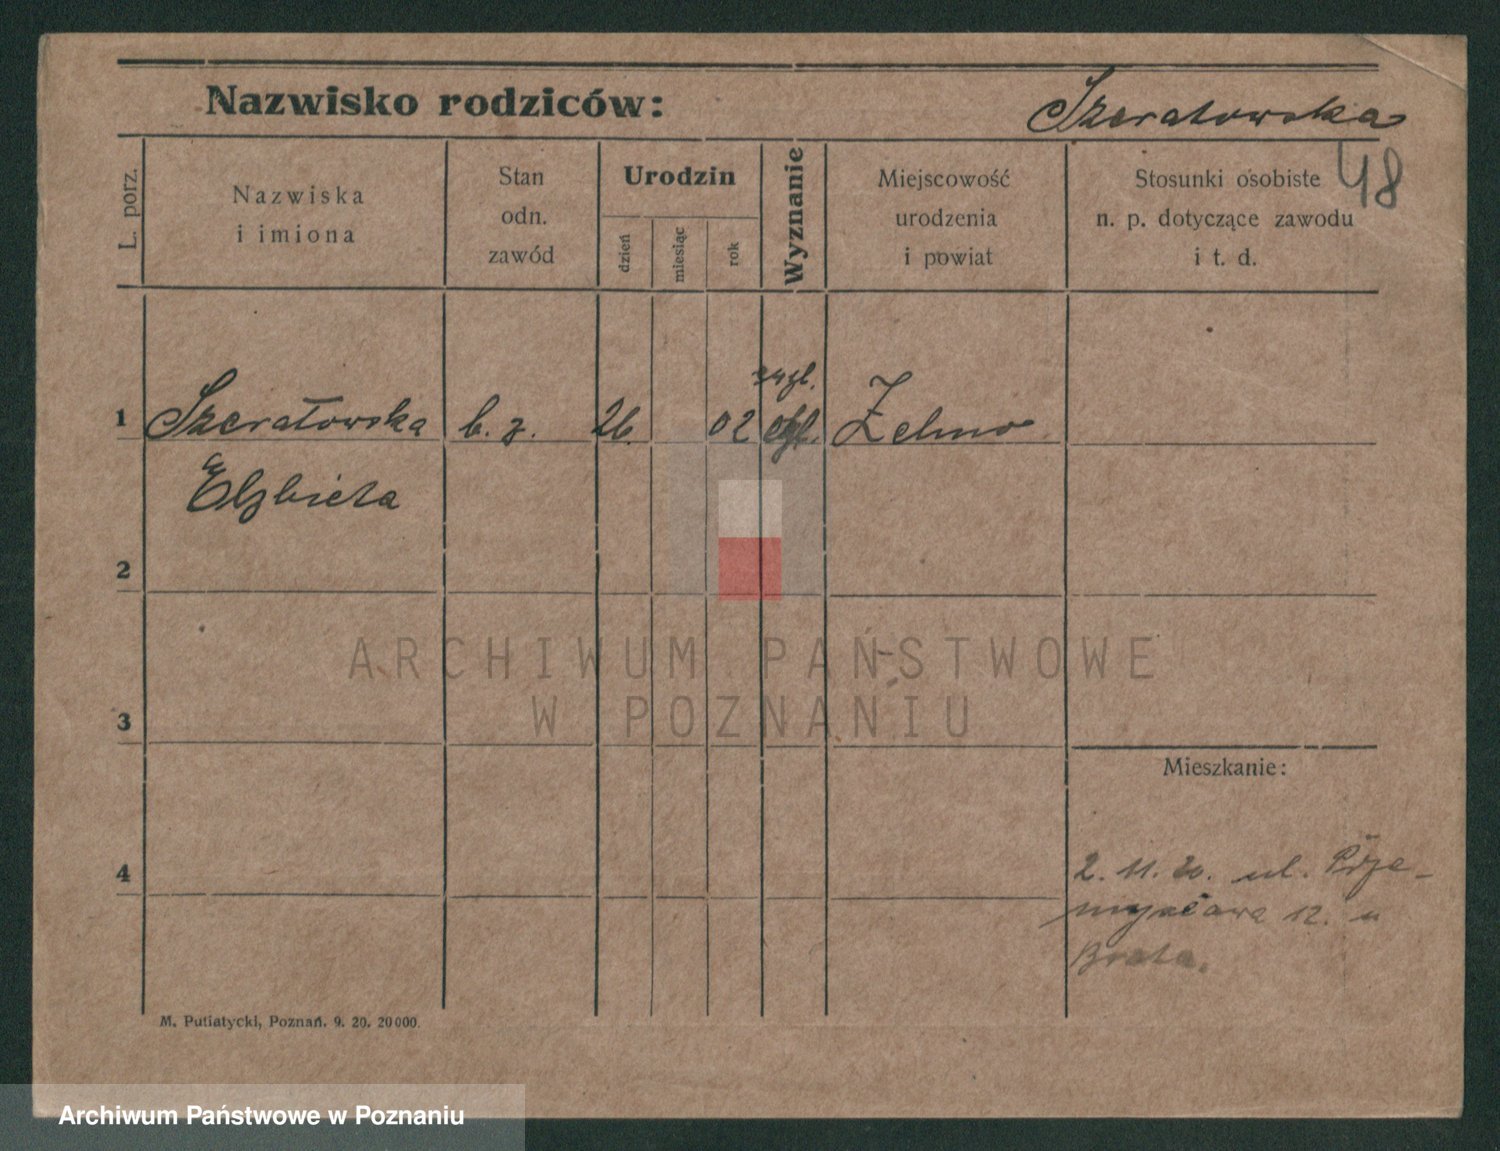 Nazwisko rodziców:
Szeratowska
48
L. porz.
Nazwiska
i imiona
Stan
odn.
zawód
Urodzin
dzień
miesiąc
rok
Wyznanie
Miejscowość
urodzenia
i powiat
Stosunki osobiste
n. p. dotyczące zawodu
i t. d.
1
Szerałowska
b. z.
26.
02
Żelmo
Elżbieta
2
ARCHIWUM PAŃSTWOWE
W POZNANIU
3
Mieszkanie:
4
2. 11. 20. ul. Prze-
mysława 12. u
Brata.
M. Putiatycki, Poznań. 9. 20. 20000.
Archiwum Państwowe w Poznaniu